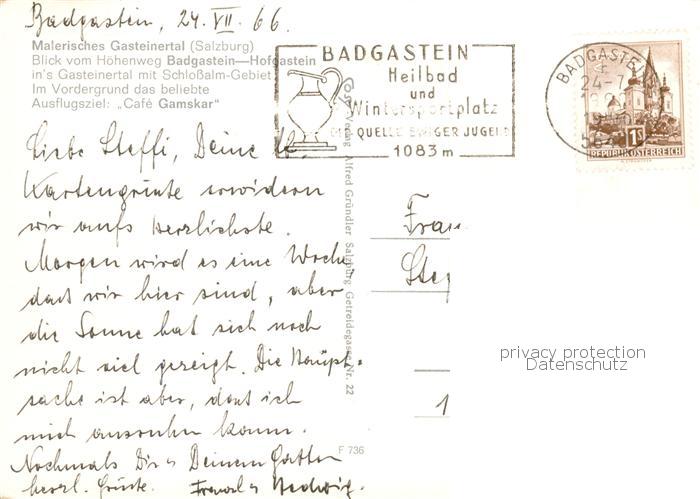 Badgastein, 24. VII. 66.
Malerisches Gasteinertal (Salzburg)
Blick vom Höhenweg Badgastein—Hofgastein
in's Gasteinertal mit Schloßalm-Gebiet
Im Vordergrund das beliebte
Ausflugsziel: „Café Gamskar"
BADGASTEIN
Heilbad
und
Wintersportplatz
DIE QUELLE EWIGER JUGEND
1083 m
BADGASTEIN
24-7
1S
REPUBLIK ÖSTERREICH
Verlag Alfred Gründler Salzburg Getreidegasse Nr. 22
Liebe Steffi, Deine
Kartengrüße erwidern
wir aufs herzlichste.
Morgen wird es eine Woche,
daß wir hier sind, aber
die Sonne hat sich noch
nicht viel gezeigt. Die Haupt-
sache ist aber, daß ich
mich ausruhen kann.
Nochmals Dir u Deinem Gatten
herzl. Grüße. Hedwig.
Frau
Ste
1
F 736
privacy protection
Datenschutz